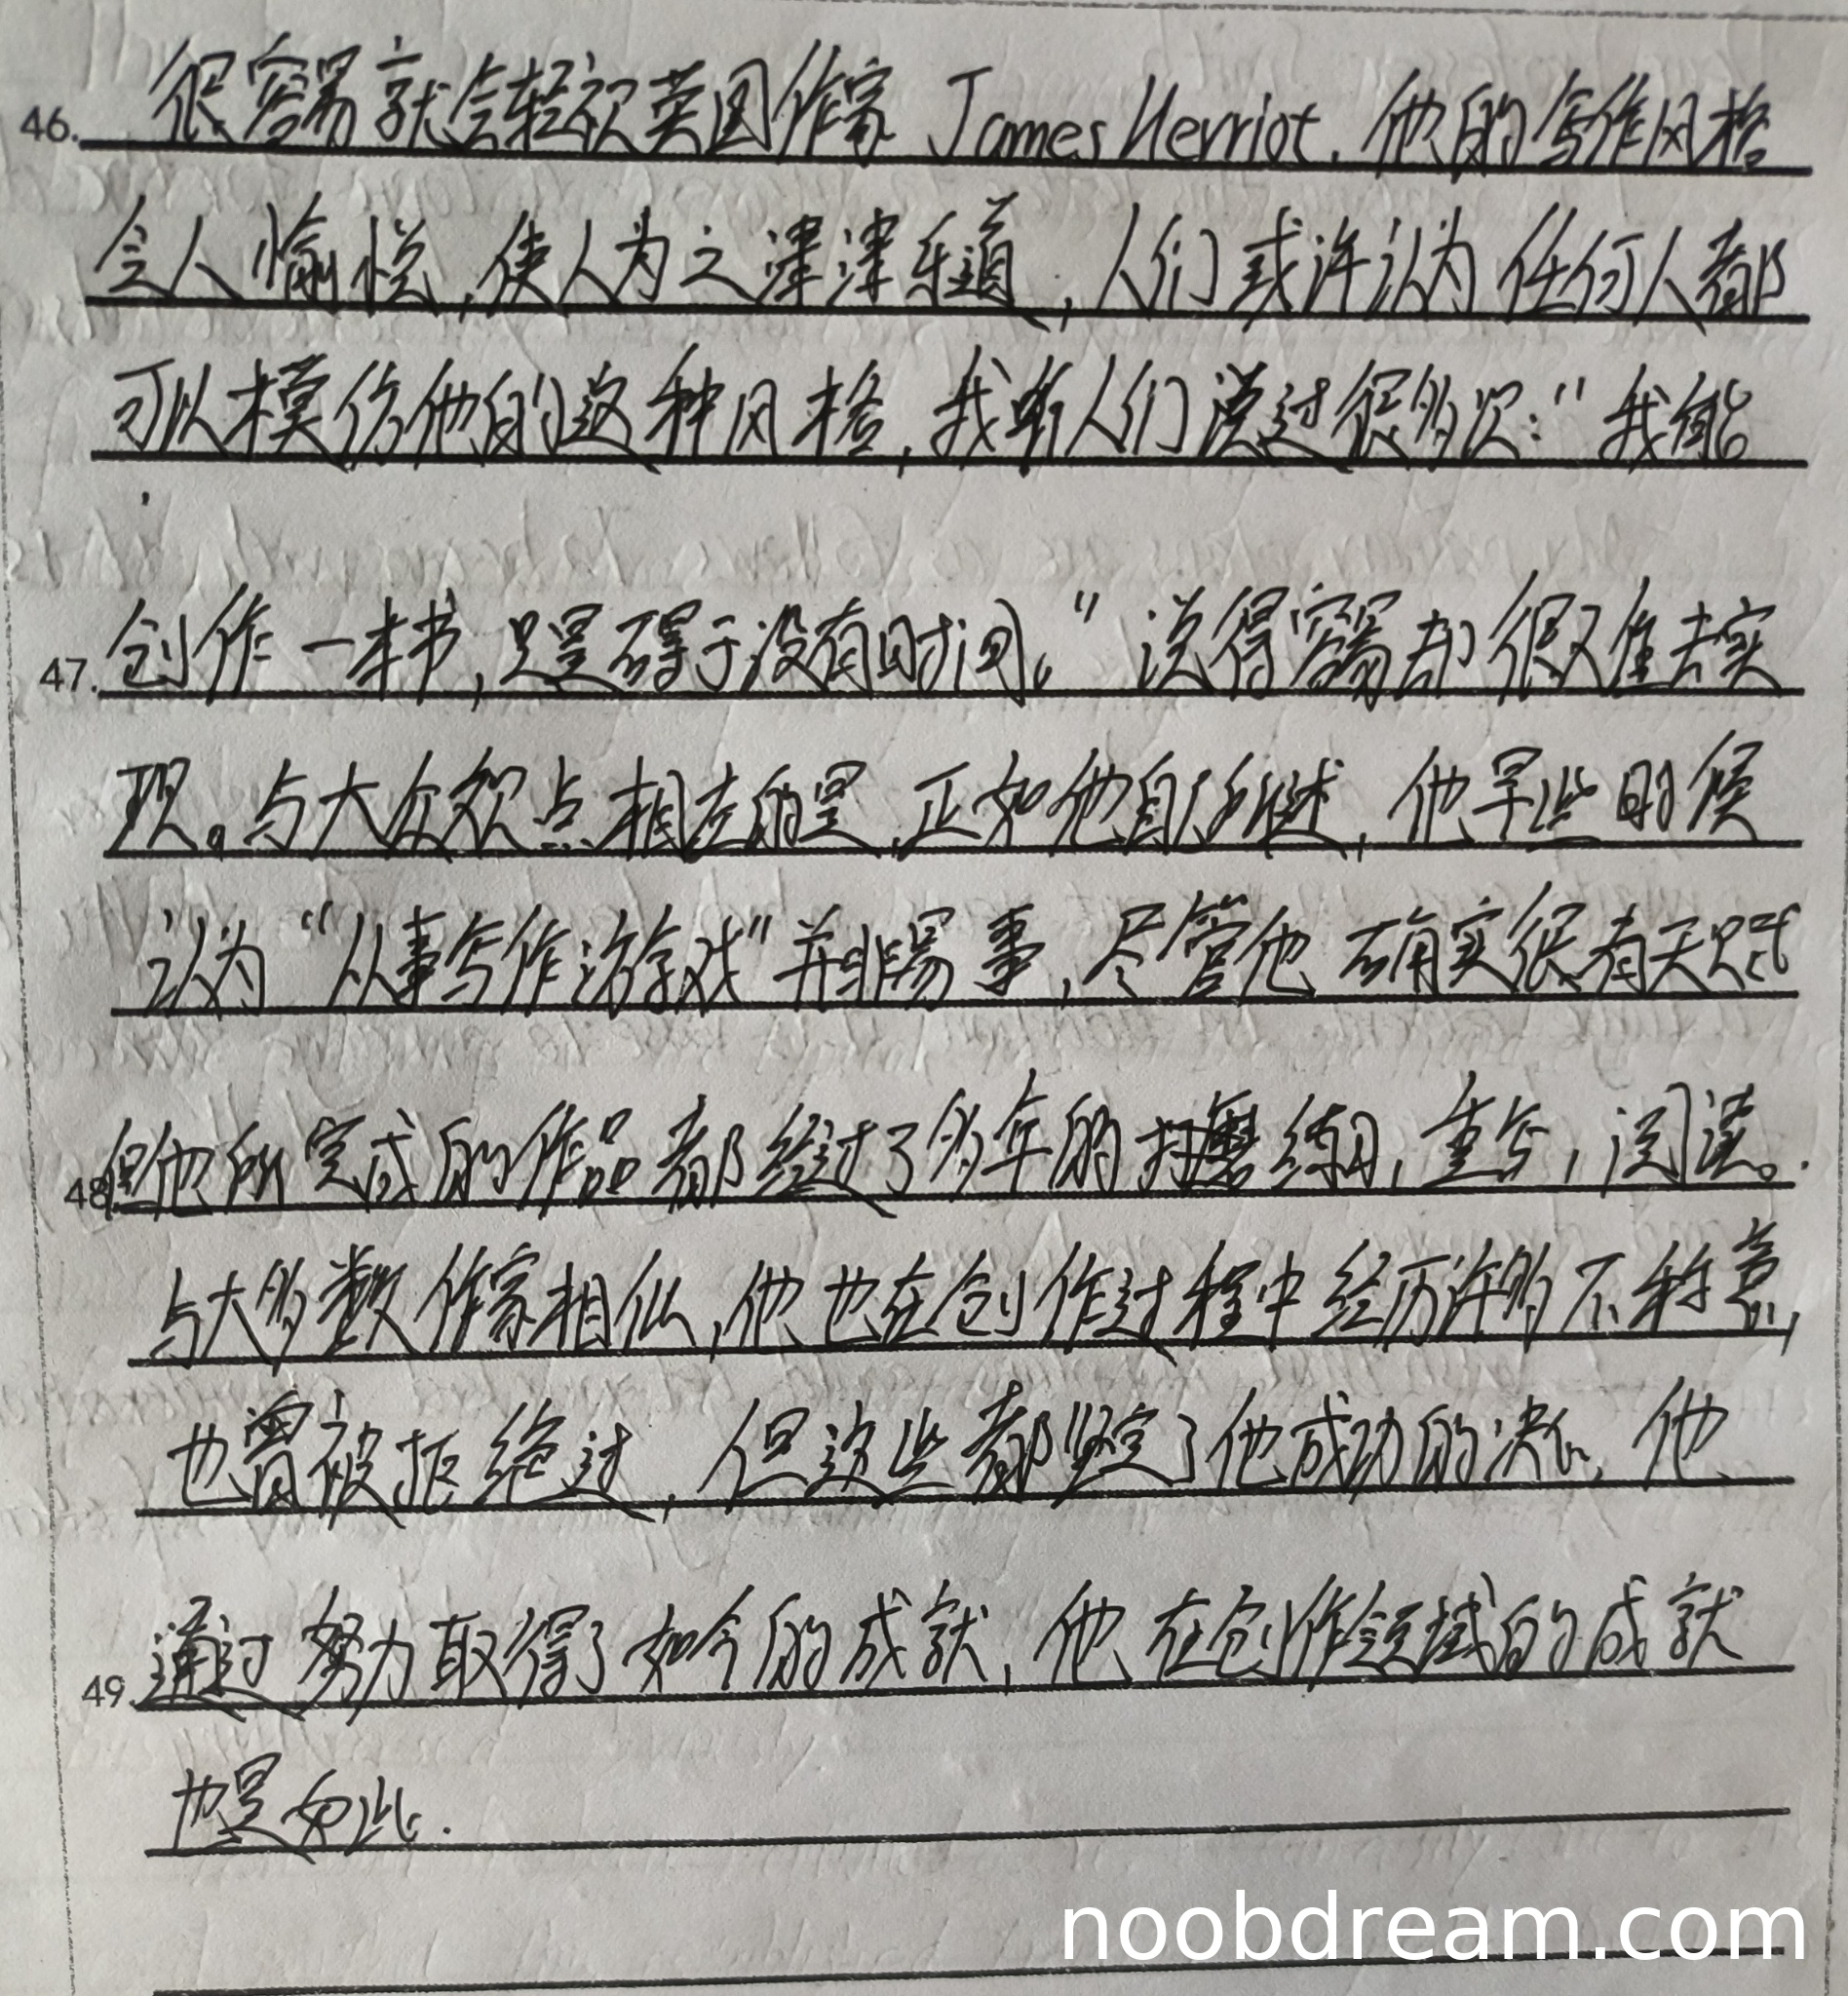 46. 很容易就会轻视英国作家 James Herriot, 他的写作风格
令人愉悦,使人为之津津乐道,人们或许认为任何人都
可以模仿他的这种风格,我听人们说过很多次:"我能
47. 创作一本书,只是碍于没有时间。"说得容易却很难去实
现。与大众观点相左的是,正如他自己所述,他早些时候
认为"从事写作游戏"并非易事,尽管他确实很有天赋
48. 但他所完成的作品都经过了多年的打磨练习,重写,阅读。
与大多数作家相似,他也在创作过程中经历许多不称意,
也曾被拒绝过,但这些都坚定了他成功的决心,他
49. 通过努力取得了如今的成就,他在创作领域的成就
也是如此.
noobdream.com